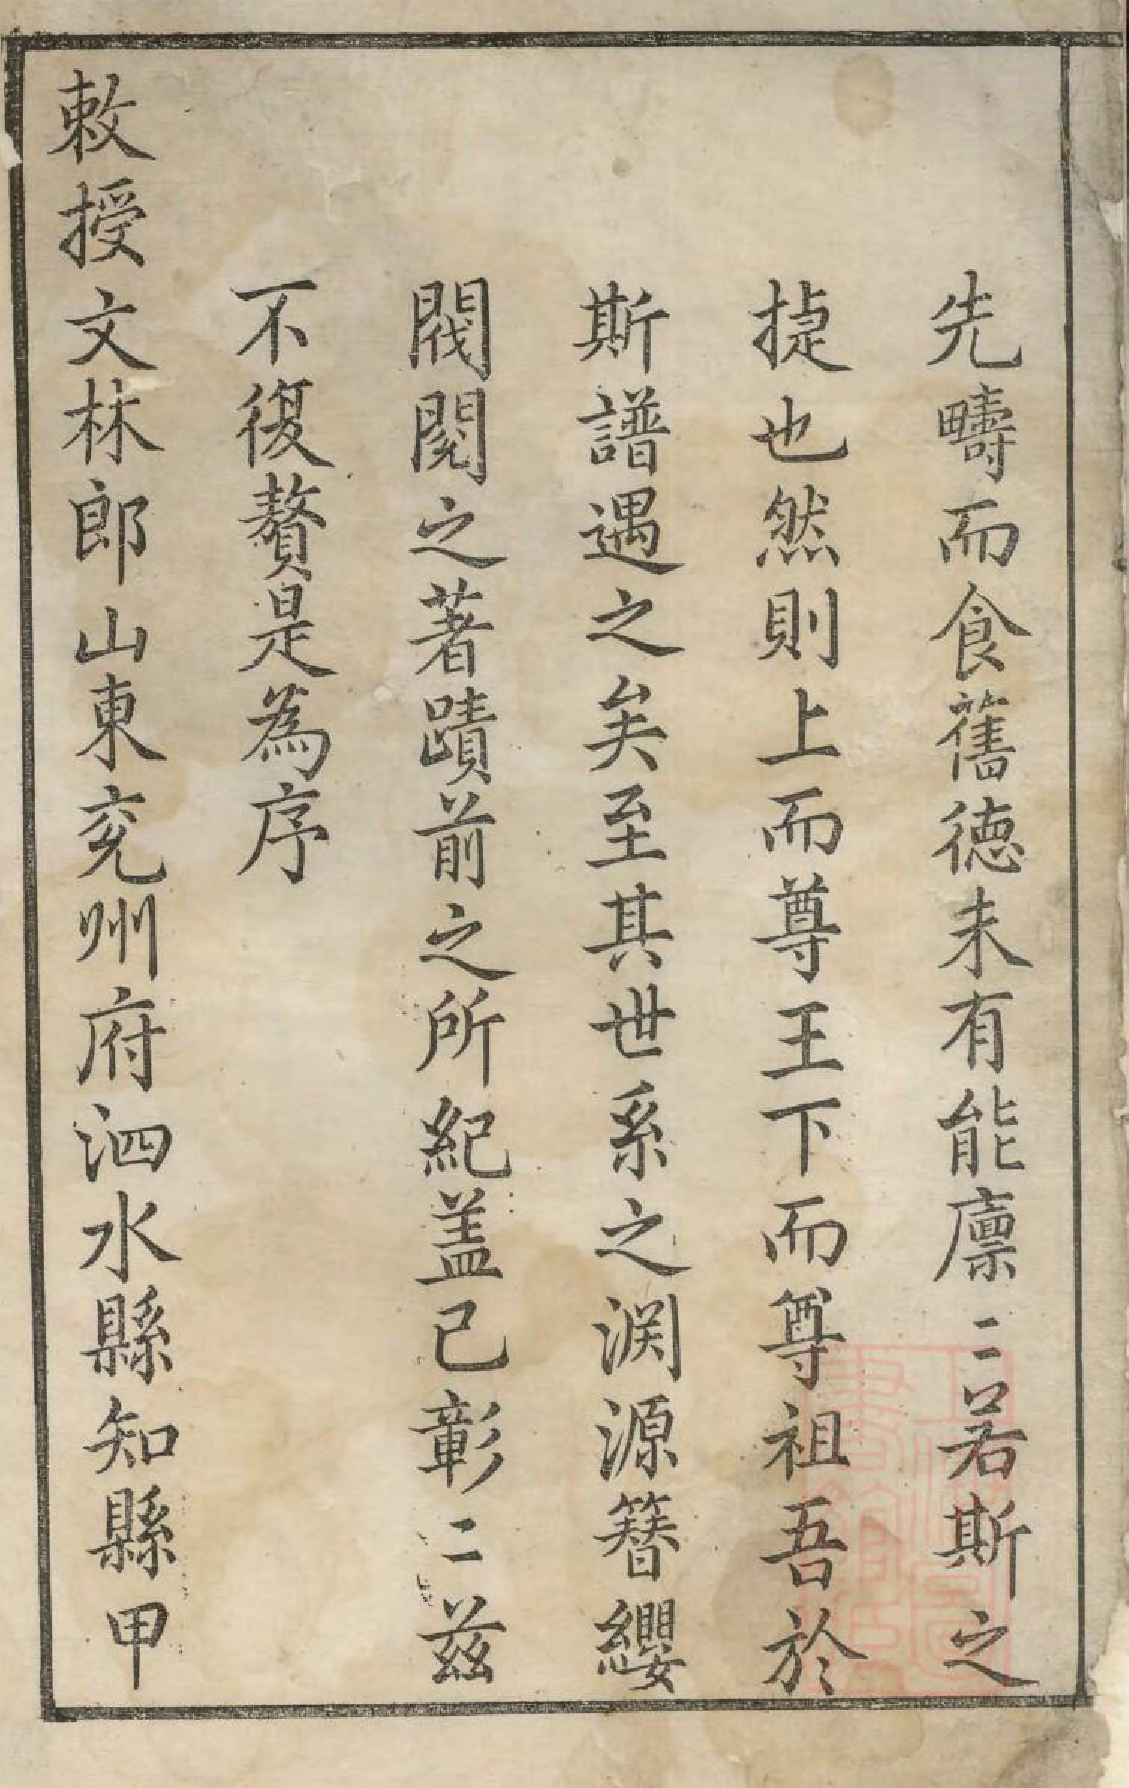 先疇而食舊德未有能廪〻若斯之
捷也然則上而尊王下而尊祖吾於
斯譜遇之矣至其世系之渊源簪纓
閥閱之著蹟前之所紀盖已彰〻兹
不復贅是為序
敕授文林郎山東兖州府泗水縣知縣甲